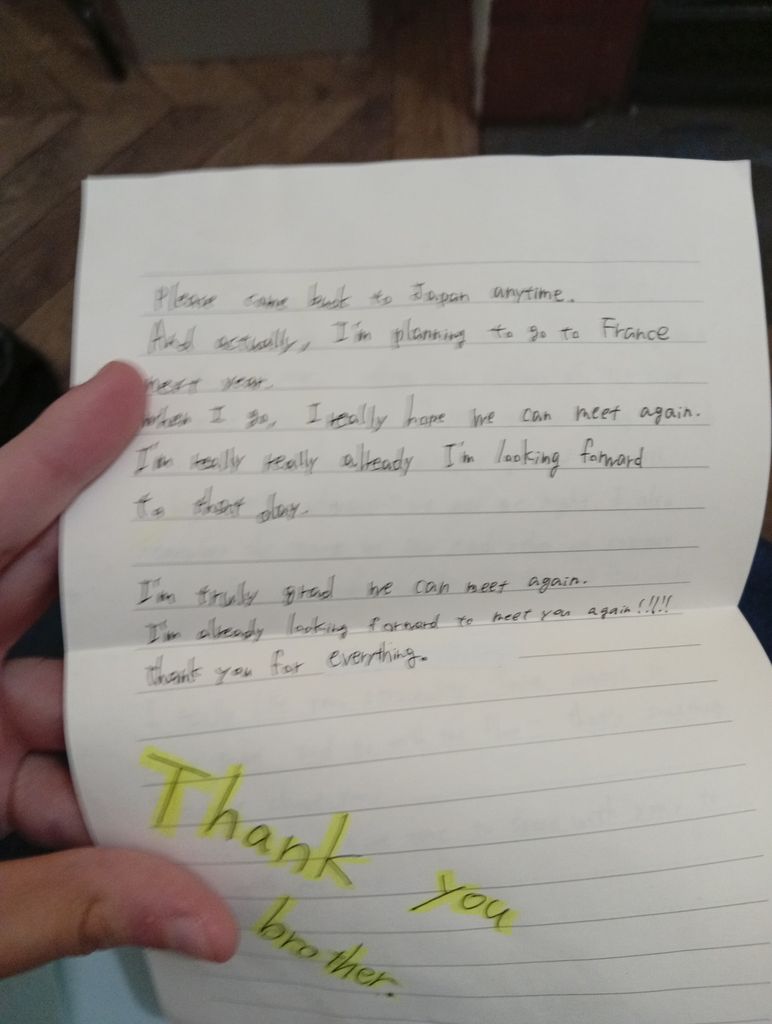 Please came back to Japan anytime.
And actually, I'm planning to go to France
next year.
When I go, I really hope we can meet again.
I'm really really already I'm looking forward
to that day.
I'm truly grad we can meet again.
I'm already looking forward to meet you again!!!!!
thank you for everything.
Thank you
brother.